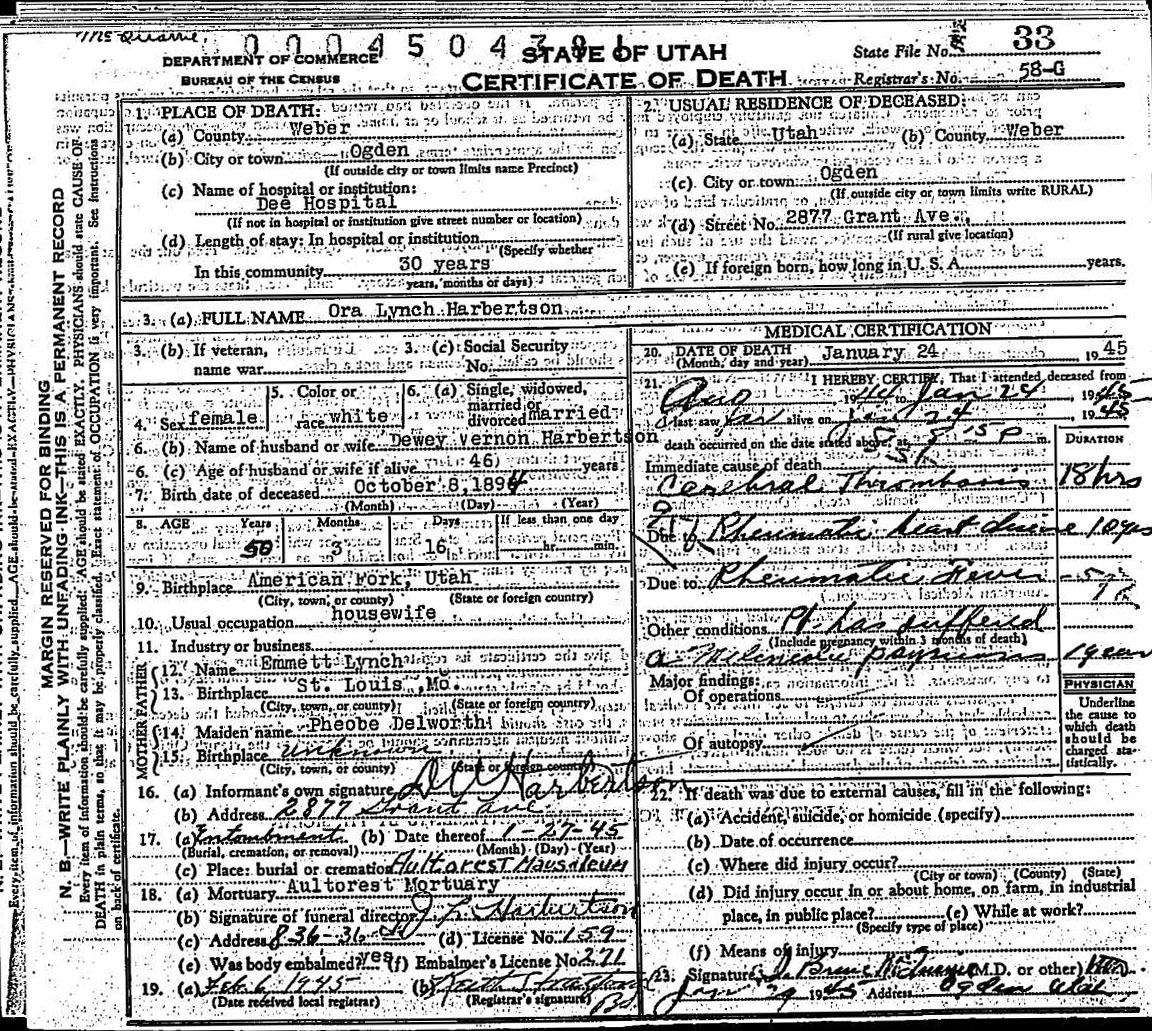 McQuarrie,
0 0 0 4 5 0 4 3 8 1
DEPARTMENT OF COMMERCE
BUREAU OF THE CENSUS
STATE OF UTAH
CERTIFICATE OF DEATH
State File No. 33
Registrar's No. 58-G
MARGIN RESERVED FOR BINDING
N. B.—WRITE PLAINLY WITH UNFADING INK—THIS IS A PERMANENT RECORD
Every item of information should be carefully supplied. AGE should be stated EXACTLY. PHYSICIANS should state CAUSE OF
DEATH in plain terms, so that it may be properly classified. Exact statement of OCCUPATION is very important. See instructions
on back of certificate.
1. PLACE OF DEATH:
(a) County Weber
(b) City or town Ogden
(If outside city or town limits name Precinct)
(c) Name of hospital or institution:
Dee Hospital
(If not in hospital or institution give street number or location)
(d) Length of stay: In hospital or institution
(Specify whether
In this community 30 years
years, months or days)
2. USUAL RESIDENCE OF DECEASED:
(a) State Utah (b) County Weber
(c) City or town Ogden
(If outside city or town limits write RURAL)
(d) Street No. 2877 Grant Ave.
(If rural give location)
(e) If foreign born, how long in U. S. A. years.
3. (a) FULL NAME Ora Lynch Harbertson
3. (b) If veteran, name war
3. (c) Social Security No.
4. Sex female
5. Color or race white
6. (a) Single, widowed, married or divorced married
6. (b) Name of husband or wife Dewey Vernon Harbertson
6. (c) Age of husband or wife if alive 46 years
7. Birth date of deceased October 8, 1894
(Month) (Day) (Year)
8. AGE Years Months Days If less than one day
50 3 16 hr. min.
9. Birthplace American Fork, Utah
(City, town, or county) (State or foreign country)
10. Usual occupation housewife
11. Industry or business
FATHER
12. Name Emmett Lynch
13. Birthplace St. Louis, Mo.
(City, town, or county) (State or foreign country)
MOTHER
14. Maiden name Pheobe Delworth
15. Birthplace unknown
(City, town, or county) (State or foreign country)
16. (a) Informant's own signature D V Harbertson
(b) Address 2877 Grant Ave
17. (a) Entombment (b) Date thereof 1-27-45
(Burial, cremation, or removal) (Month) (Day) (Year)
(c) Place: burial or cremation Aultorest Mausoleum
18. (a) Mortuary Aultorest Mortuary
(b) Signature of funeral director J. L. Harbertson
(c) Address 836-36 St (d) License No. 159
(e) Was body embalmed? yes (f) Embalmer's License No. 271
19. (a) Feb 6 1945 (b)
(Date received local registrar) (Registrar's signature)
MEDICAL CERTIFICATION
20. DATE OF DEATH January 24 1945
(Month, day and year)
21. I HEREBY CERTIFY, That I attended deceased from
Aug 1944 to Jan 24 1945
I last saw her alive on Jan 24 1945
death occurred on the date stated above, at 8:15 P m.
DURATION
Immediate cause of death
Cerebral Thrombosis 18 hrs
Due to Rheumatic heart disease 10 yrs
Due to Rheumatic Fever
Other conditions Pt. has suffered
(Include pregnancy within 3 months of death)
1 year
Major findings:
Of operations
Of autopsy
PHYSICIAN
Underline
the cause to
which death
should be
charged sta-
tistically.
22. If death was due to external causes, fill in the following:
(a) Accident, suicide, or homicide (specify)
(b) Date of occurrence
(c) Where did injury occur?
(City or town) (County) (State)
(d) Did injury occur in or about home, on farm, in industrial
place, in public place? (e) While at work?
(Specify type of place)
(f) Means of injury
23. Signature Bruce McQuarrie (M.D. or other) MD
Jan 29 1945 Address Ogden Utah